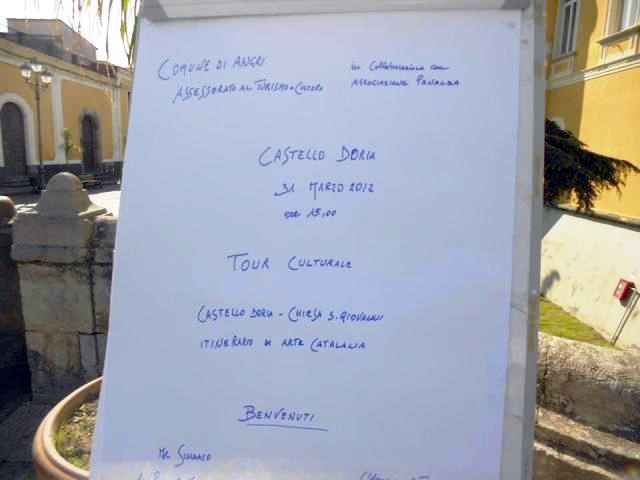 COMUNE DI ANGRI
in collaborazione con
ASSESSORATO AL TURISMO e CULTURA
ASSOCIAZIONE PANACEA
CASTELLO DORIA
31 MARZO 2012
ore 15,00
TOUR CULTURALE
CASTELLO DORIA - CHIESA S. GIOVANNI
ITINERARIO DI ARTE CATALANA
BENVENUTI
IL SINDACO